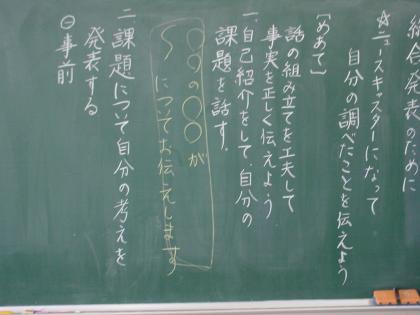 総合発表のために
☆ニュースキャスターになって
自分の調べたことを伝えよう
〔めあて〕
話の組み立てを工夫して
事実を正しく伝えよう
一、自己紹介をして、自分の
課題を話す。
○○の○○が
〜についてお伝えします
二 課題について自分の考えを
発表する
㊀事前